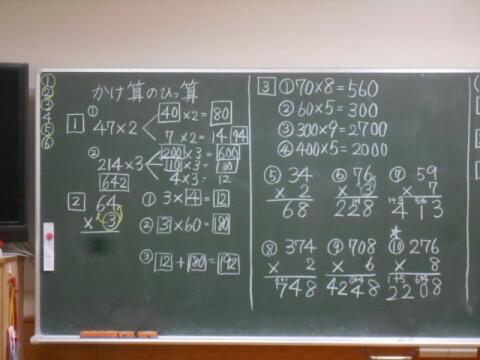 ①
②
③
4
⑤
⑥
かけ算のひっ算
1
①
47×2
40×2=80
7×2=14 94
②
214×3
200×3=600
10×3=30
4×3=12
642
2
64
×3
①3×4=12
②3×60=180
③12+180=192
3
①70×8=560
②60×5=300
③300×9=2700
④400×5=2000
⑤34
×2
68
⑥76
×3
228
⑦59
×7
413
⑧374
×2
748
⑨708
×6
4248
⑩276
×8
2208